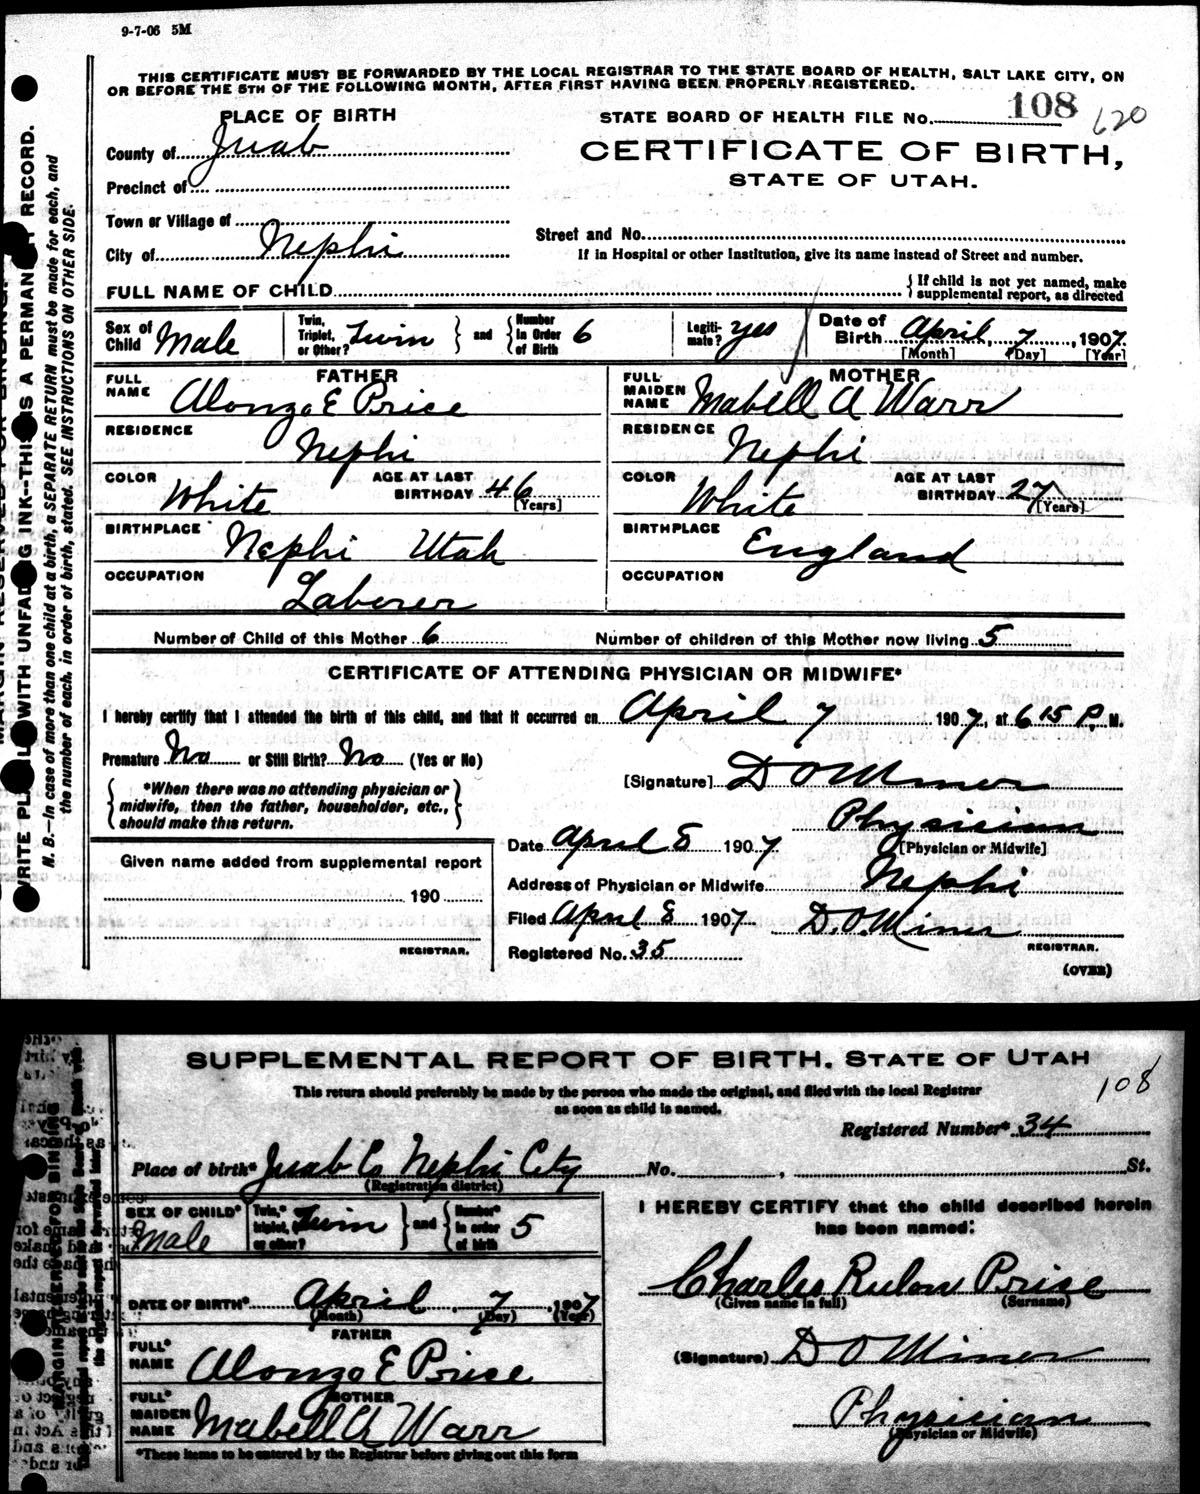 9-7-06 5M
THIS CERTIFICATE MUST BE FORWARDED BY THE LOCAL REGISTRAR TO THE STATE BOARD OF HEALTH, SALT LAKE CITY, ON
OR BEFORE THE 5TH OF THE FOLLOWING MONTH, AFTER FIRST HAVING BEEN PROPERLY REGISTERED.
PLACE OF BIRTH
STATE BOARD OF HEALTH FILE No. 108 620
County of Juab
CERTIFICATE OF BIRTH,
STATE OF UTAH.
Precinct of
Town or Village of
Street and No.
City of Nephi
If in Hospital or other Institution, give its name instead of Street and number.
FULL NAME OF CHILD
{ If child is not yet named, make
supplemental report, as directed
Sex of Child Male
Twin, Triplet, or Other? Twin } and { Number in Order of Birth 6
Legiti- mate? yes
Date of Birth April 7, 1907
[Month] [Day] [Year]
FATHER
FULL NAME Alonzo E Price
MOTHER
FULL MAIDEN NAME Mabell A Warr
RESIDENCE Nephi
RESIDENCE Nephi
COLOR White
AGE AT LAST BIRTHDAY 46 [Years]
COLOR White
AGE AT LAST BIRTHDAY 27 [Years]
BIRTHPLACE Nephi Utah
BIRTHPLACE England
OCCUPATION Laborer
OCCUPATION
Number of Child of this Mother 6
Number of children of this Mother now living 5
CERTIFICATE OF ATTENDING PHYSICIAN OR MIDWIFE*
I hereby certify that I attended the birth of this child, and that it occurred on April 7 1907, at 6 15 P. M.
Premature No or Still Birth? No (Yes or No)
[Signature] D O Miner
{ *When there was no attending physician or
midwife, then the father, householder, etc.,
should make this return. }
Physician
[Physician or Midwife]
Date April 8 1907
Given name added from supplemental report
190
REGISTRAR.
Address of Physician or Midwife Nephi
Filed April 8 1907 D. O. Miner
REGISTRAR.
Registered No. 35
(OVER)
WRITE PLAINLY WITH UNFADING INK--THIS IS A PERMANENT RECORD.
N. B.—In case of more than one child at a birth, a SEPARATE RETURN must be made for each, and
the number of each, in order of birth, stated. SEE INSTRUCTIONS ON OTHER SIDE.
SUPPLEMENTAL REPORT OF BIRTH, STATE OF UTAH
This return should preferably be made by the person who made the original, and filed with the local Registrar
as soon as child is named.
108
Registered Number* 34
Place of birth* Juab Co Nephi City No. , St.
(Registration district)
SEX OF CHILD* Male
Twin,* triplet, or other? Twin } and { Number* in order of birth 5
I HEREBY CERTIFY that the child described herein
has been named:
DATE OF BIRTH* April 7, 1907
(Month) (Day) (Year)
Charles Rulon Price
(Given name in full) (Surname)
FATHER
FULL* NAME Alonzo E Price
(Signature) D O Miner
MOTHER
FULL* MAIDEN NAME Mabell A Warr
Physician
(Physician or Midwife)
*These items to be entered by the Registrar before giving out this form